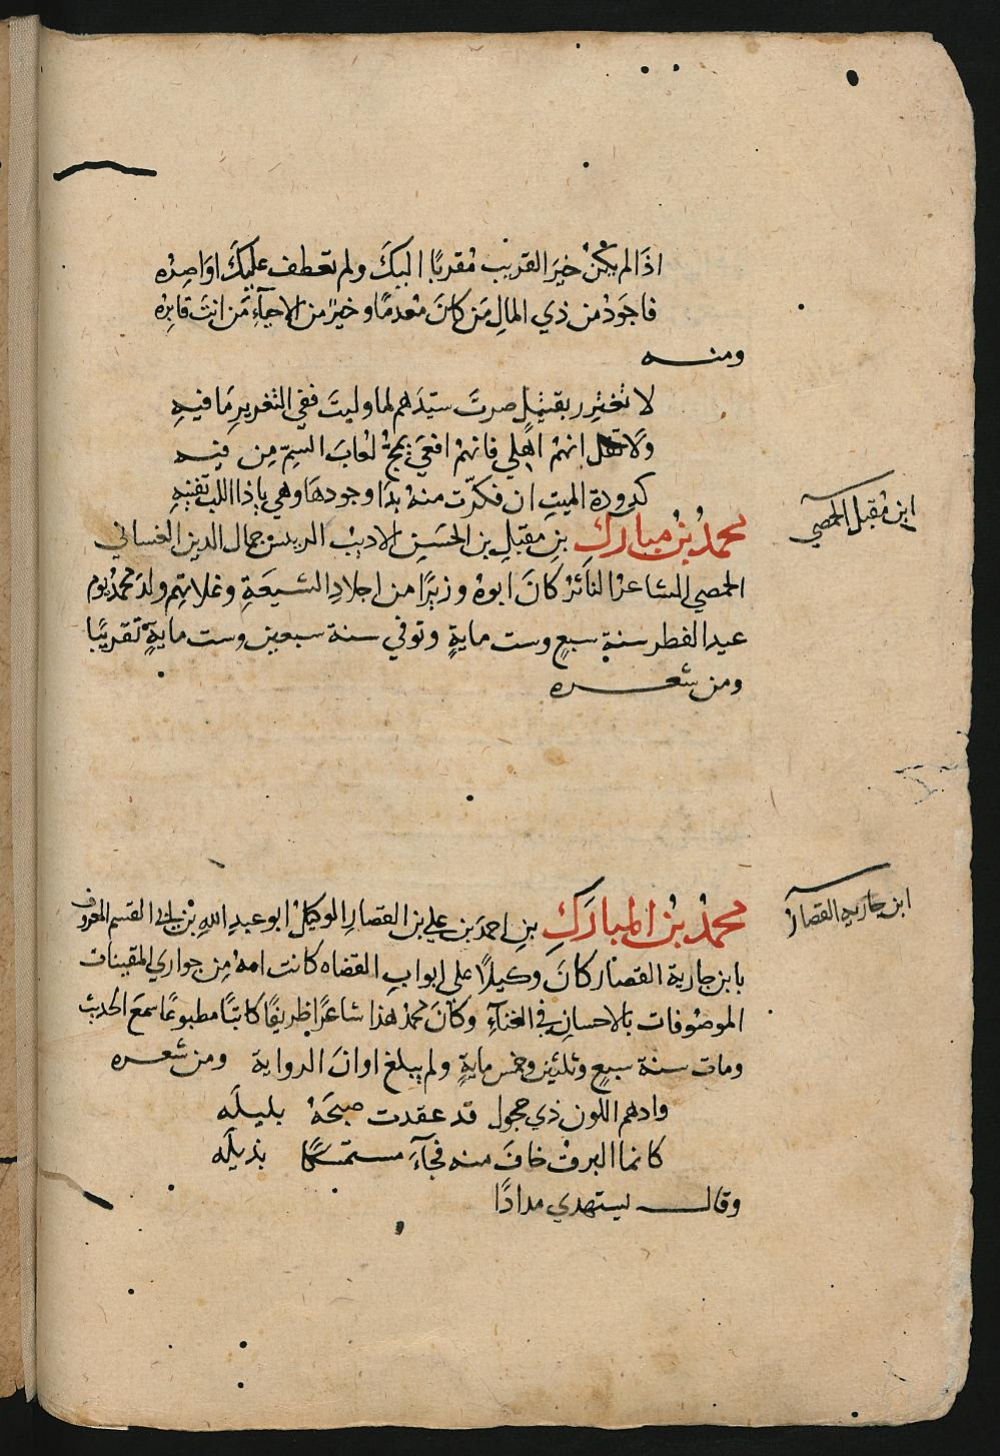 اذَا لم يكُنْ خيرَ القريب مُقربًا اليكَ ولم تعطف عليكَ اوَاصِرُه
فاجَودُ من ذي المالِ مَن كانَ مُعدمًا وخيرٌ من الاحيآءِ مَن انتَ قابرُه
ومنه
لا تغترِر بقيتلٍ صرتَ سيّدَهم لما وليتَ ففي التغريرِ مَا فيهِ
ولا تقل انهمُ اهلي فانهمُ افعَى يمجُّ لعابَ السمِّ مِن فيه
كدودة الميتِ ان فكرّت منهُ بدَا وجودهَا وهي يا ذا اللب تفنيهِ
محمدُ بنُ مبارَكِ بنِ مقبلِ بن الحَسَنِ الاديبُ الريس جمال الدين الغساني
الحمصي الشاعرُ الناثرُ كانَ ابوهُ وزيرًا من اجلادِ الشيعَةِ وغلاتِهم ولدَ محمدٌ يوم
عيد الفطر سنةِ سبعٍ وست مايةٍ وتوفي سنة سبعين وست مايةٍ تقريبًا
ومن شعره
ابن مُقبل الحمصي
محمدُ بنُ المبارَكِ بنِ احمدَ بن علي بن القصارِ الوكيلُ ابو عبدِ اللهِ بنُ ابي القسم المعروف
بابن جارية القصّار كانَ وكيلًا على ابوابِ القضاه كانت امهُ مِن جواري المقينات
الموصُوفات بالاحسانِ في الغنآءِ وكانَ محمدٌ هَذا شاعرًا ظريفًا كاتبًا مطبوعًا سمعَ الحديثَ
ومات سنة سبعٍ وثلثين وخمس مايةٍ ولم يبلغ اوانَ الرواية ومن شعره
وادهم اللون ذي حجول قد عقدت صبحَهُ بليلَه
كانما البرقُ خافَ منه فجآءَ مستمسكًا بذيلَه
وقال يستهدي مدادًا
ابن جارية القصار